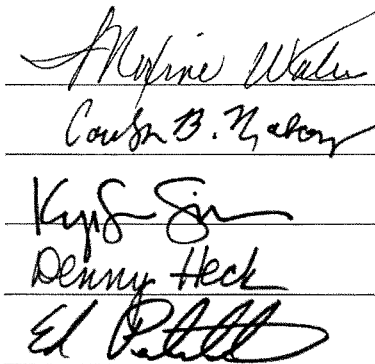 Maxine Waters
Carolyn B. Maloney
Kyrsten Sinema
Denny Heck
Ed Perlmutter